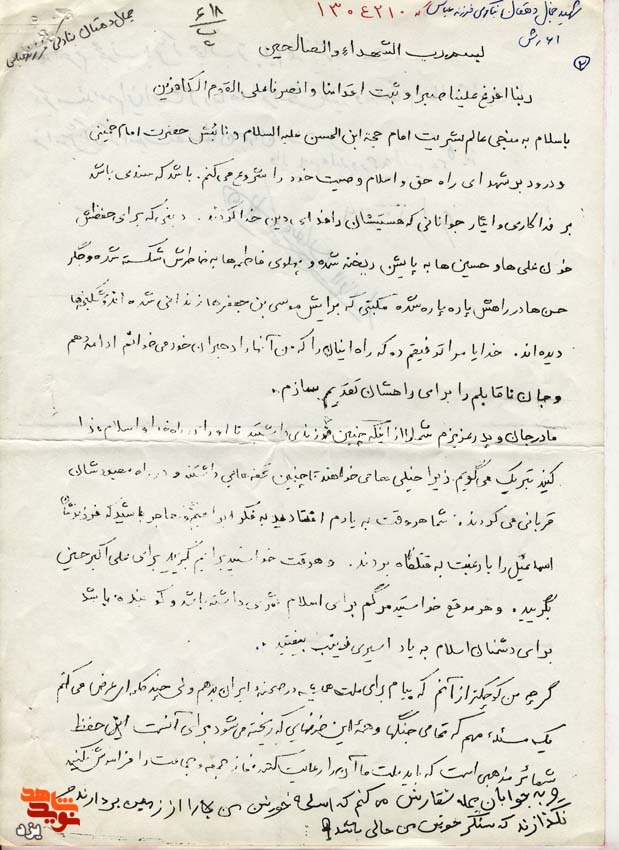 شهید جمال دهقان بنادکی فرزند عباس
کد ۱۳۰۶۲۱۰
جمال دهقان بنادکی فرزند عباس
۱۸
۶۱ ارتش
۲
بسم رب الشهداء و الصالحین
ربنا افرغ علینا صبرا و ثبت اقدامنا و انصرنا علی القوم الکافرین
با سلام به منجی عالم بشریت امام حجة ابن الحسن علیه السلام و نائبش حضرت امام خمینی
و درود بر شهدای راه حق و اسلام وصیت خود را شروع می کنم. باشد که سندی باشد
بر فداکاری و ایثار جوانانی که هستیشان را فدای دین خدا کردند. دینی که برای حفظش
خون علی ها و حسین ها به پایش ریخته شده و پهلوی فاطمه ها به خاطرش شکسته شده و جگر
حسن ها در راهش پاره پاره شده مکتبی که برایش موسی بن جعفرها زندانی شده اند و شکنجه ها
دیده اند. خدایا مرا توفیقم ده که راه اینان را که من آنها را رهبران خود می خوانم ادامه دهم
و جان ناقابلم را برای راهشان تقدیم سازم.
مادر جان و پدر عزیزم شما را از اینکه چنین فرزندی داشتید تا او را در راه خدا و اسلام فدا
کنید تبریک می گویم زیرا خیلی ها می خواهند تا چنین تحفه هایی داشتند و در راه معبودشان
قربانی می کردند. شما هر وقت به یادم افتادید به فکر ابراهیم و هاجر باشید که فرزندشان
اسماعیل را با رغبت به قتلگاه بردند. و هر وقت خواستید برایم بگریید برای علی اکبر حسین
بگریید. و هر موقع خواستید مرگم برای اسلام ثمری داشته باشد و کوبنده باشد
برای دشمنان اسلام به یاد اسیری زینب بیفتید..
گرچه من کوچکتر از آنم که پیام برای ملت همیشه در صحنه ایران بدهم ولی چند کلمه ای عرض می کنم
یک مسئله مهم که تمامی جنگها و همه این خونهایی که ریخته می شود برای آنست اول حفظ
شعائر مذهبی است که باید ملت ما آن را رعایت کند و نماز جمعه و جماعت را فراموش نکنید
و به جوانان همه سفارش می کنم که اسلحه خونین من را از زمین بردارند و
نگذارند که سنگر خونین من خالی باشد
شاهد
نوید
یزد